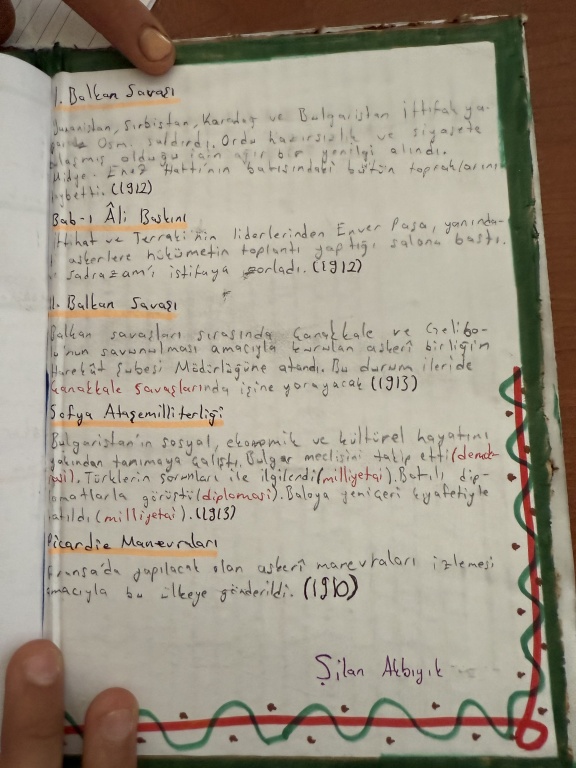 I. Balkan Savaşı
Yunanistan, Sırbistan, Karadağ ve Bulgaristan ittifak ya-
Osm. saldırdı. Ordu hazırsızlık ve siyasete
olduğu için ağır bir yenilgi alındı.
Midye-Enez Hattı'nın batısındaki bütün topraklarını
kaybetti. (1912)
Bab-ı Âli Baskını
İttihat ve Terraki'nin liderlerinden Enver Paşa, yanında-
askerlere hükümetin toplantı yaptığı salona bastı.
sadrazam'ı istifaya zorladı. (1912)
II. Balkan Savaşı
Balkan savaşları sırasında Çanakkale ve Gelibo-
lu'nun savunulması amacıyla kurulan askerî birliğin
Harekât Şubesi Müdürlüğüne atandı. Bu durum ileride
Çanakkale Savaşlarında işine yarayacak (1913)
Sofya Ataşemiliterliği
Bulgaristan'ın sosyal, ekonomik ve kültürel hayatını
yakından tanımaya çalıştı. Bulgar meclisini takip etti (demok-
rasi). Türklerin sorunları ile ilgilendi (milliyetçi). Batılı dip-
lomatlarla görüştü (diplomasi). Baloya yeniçeri kıyafetiyle
katıldı (milliyetçi). (1913)
Picardie Manevraları
Fransa'da yapılacak olan askerî manevraları izlemesi
amacıyla bu ülkeye gönderildi. (1910)
Şilan Akbıyık